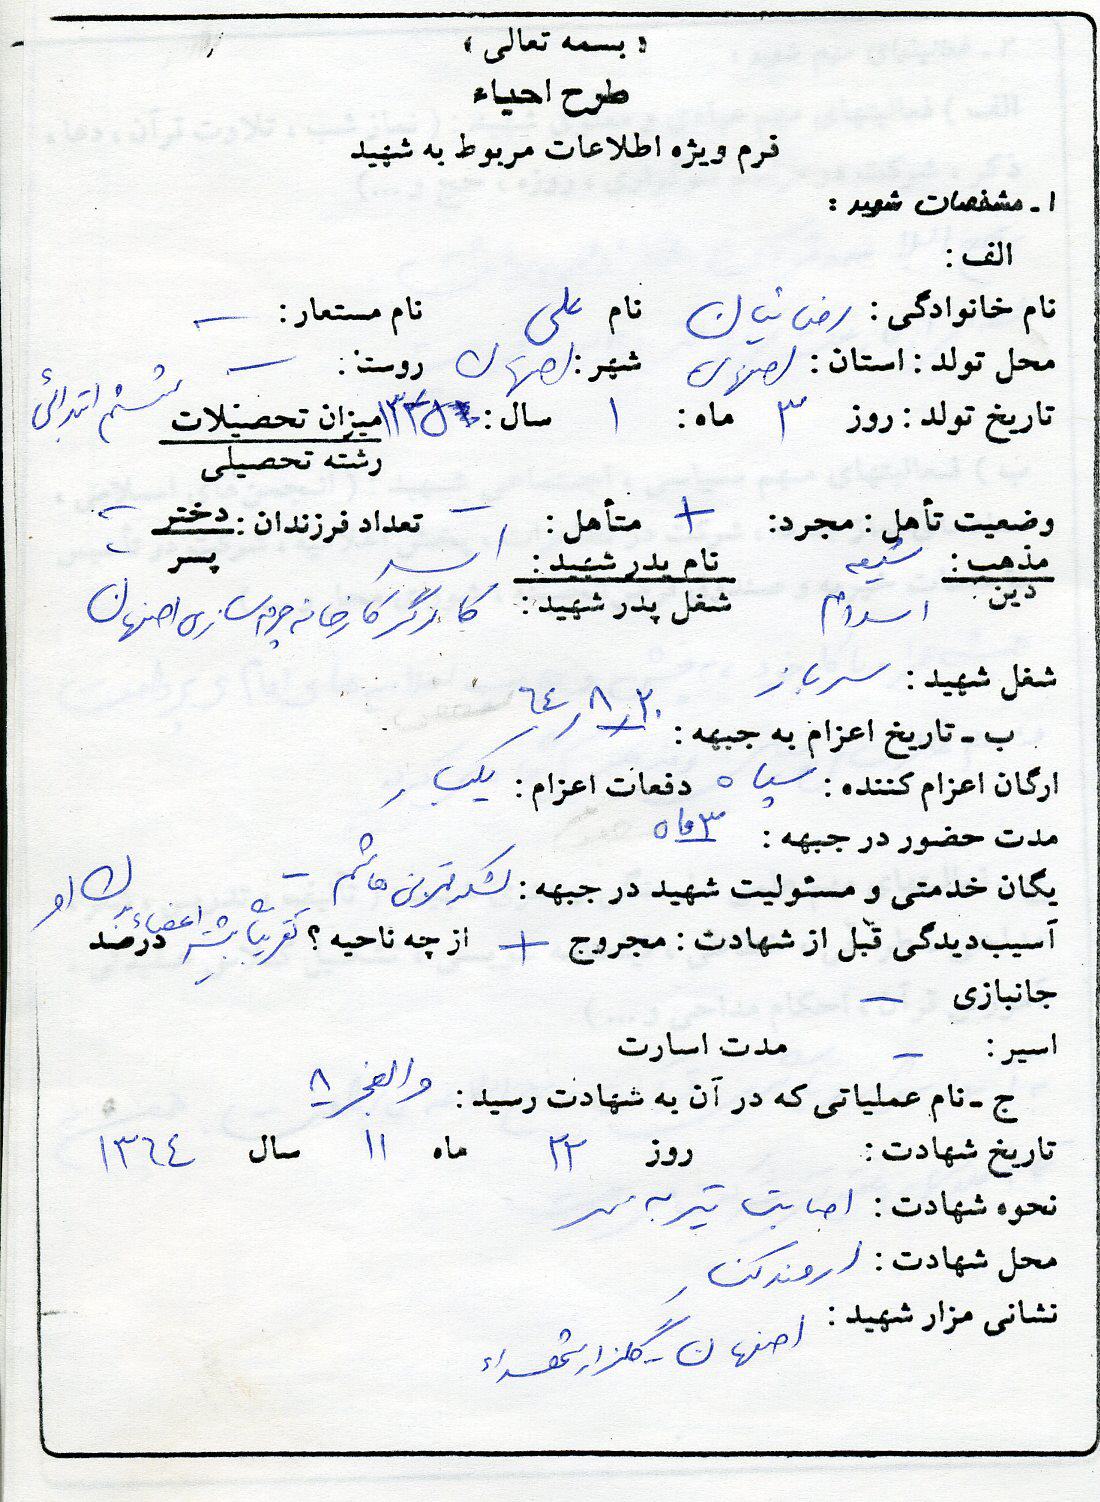 « بسمه تعالی »
طرح احیاء
فرم ویژه اطلاعات مربوط به شهید
۱ـ مشخصات شهید :
الف :
نام خانوادگی : رضائیان نام علی نام مستعار : —
محل تولد : استان : اصفهان شهر : اصفهان روستا : —
تاریخ تولد : روز ۳ ماه : ۱ سال : میزان تحصیلات ششم ابتدائی
رشته تحصیلی
وضعیت تأهل : مجرد : + متأهل : — تعداد فرزندان : دختر —
پسر —
مذهب : شیعه نام پدر شهید : اسد
دین اسلام شغل پدر شهید : کارگر کارخانه اصفهان
شغل شهید : سرباز
ب ـ تاریخ اعزام به جبهه : ۲۰ ر ۸ ر ٦٤
ارگان اعزام کننده : سپاه دفعات اعزام : یکبار
مدت حضور در جبهه : ۳ ماه
یگان خدمتی و مسئولیت شهید در جبهه : لشکر قمر بنی هاشم —
آسیب‌دیدگی قبل از شهادت : مجروح + از چه ناحیه ؟ تقریباً بیشتر اعضاء بدن او درصد
جانبازی —
اسیر : — مدت اسارت
ج ـ نام عملیاتی که در آن به شهادت رسید : والفجر ۸
تاریخ شهادت : روز ۲۲ ماه ۱۱ سال ۱۳٦٤
نحوه شهادت : اصابت تیر به سر
محل شهادت : اروندکنار
نشانی مزار شهید : اصفهان ـ گلزار شهداء